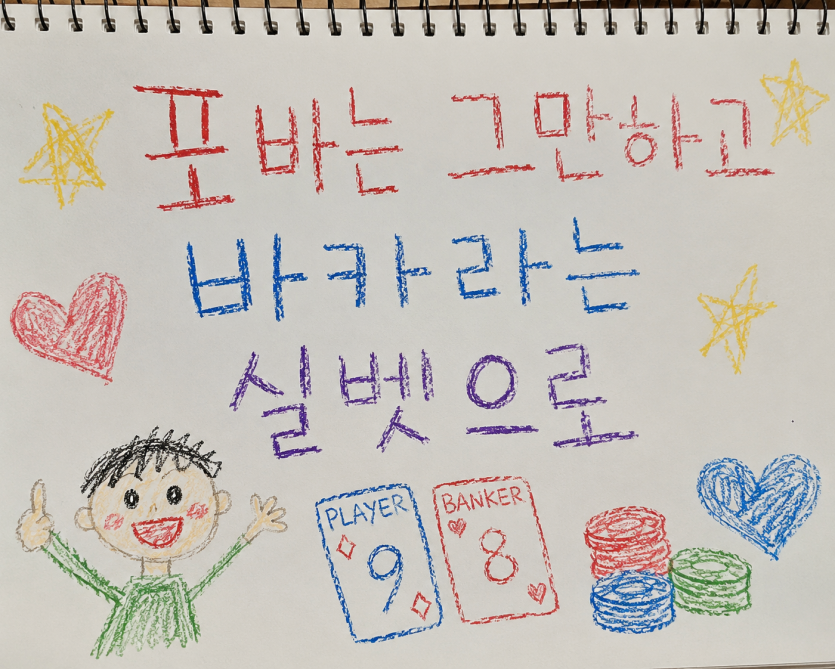 포바는 그만하고
바카라는
실벳으로
PLAYER
9
BANKER
8